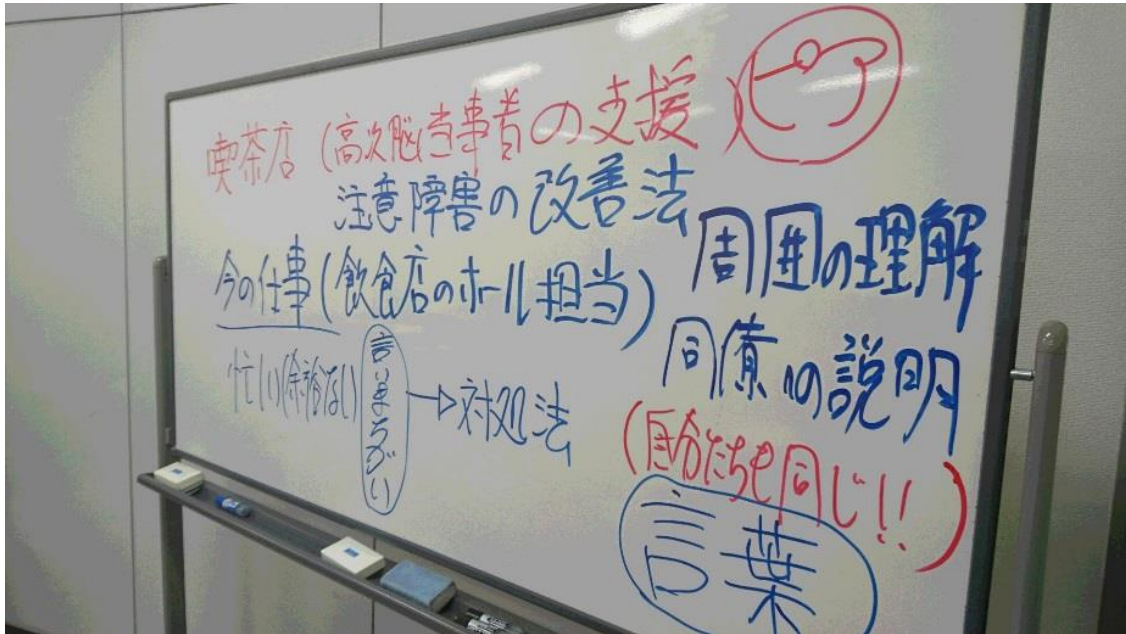 喫茶店(高次脳当事者の支援)
ピア
注意障害の改善法
今の仕事(飲食店のホール担当)
忙しい(余裕ない)
言いまちがい
→対処法
周囲の理解
同僚への説明
(自分たちも同じ!!)
言葉